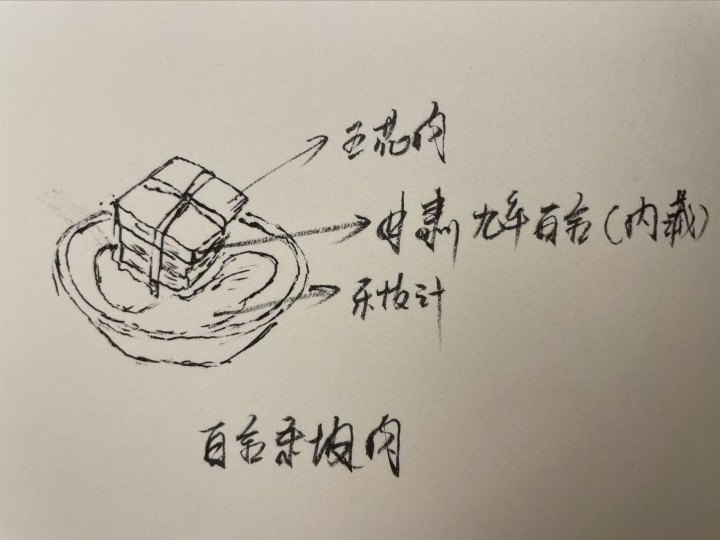 五花肉
甘肃九年百合(内藏)
东坡汁
百合东坡肉